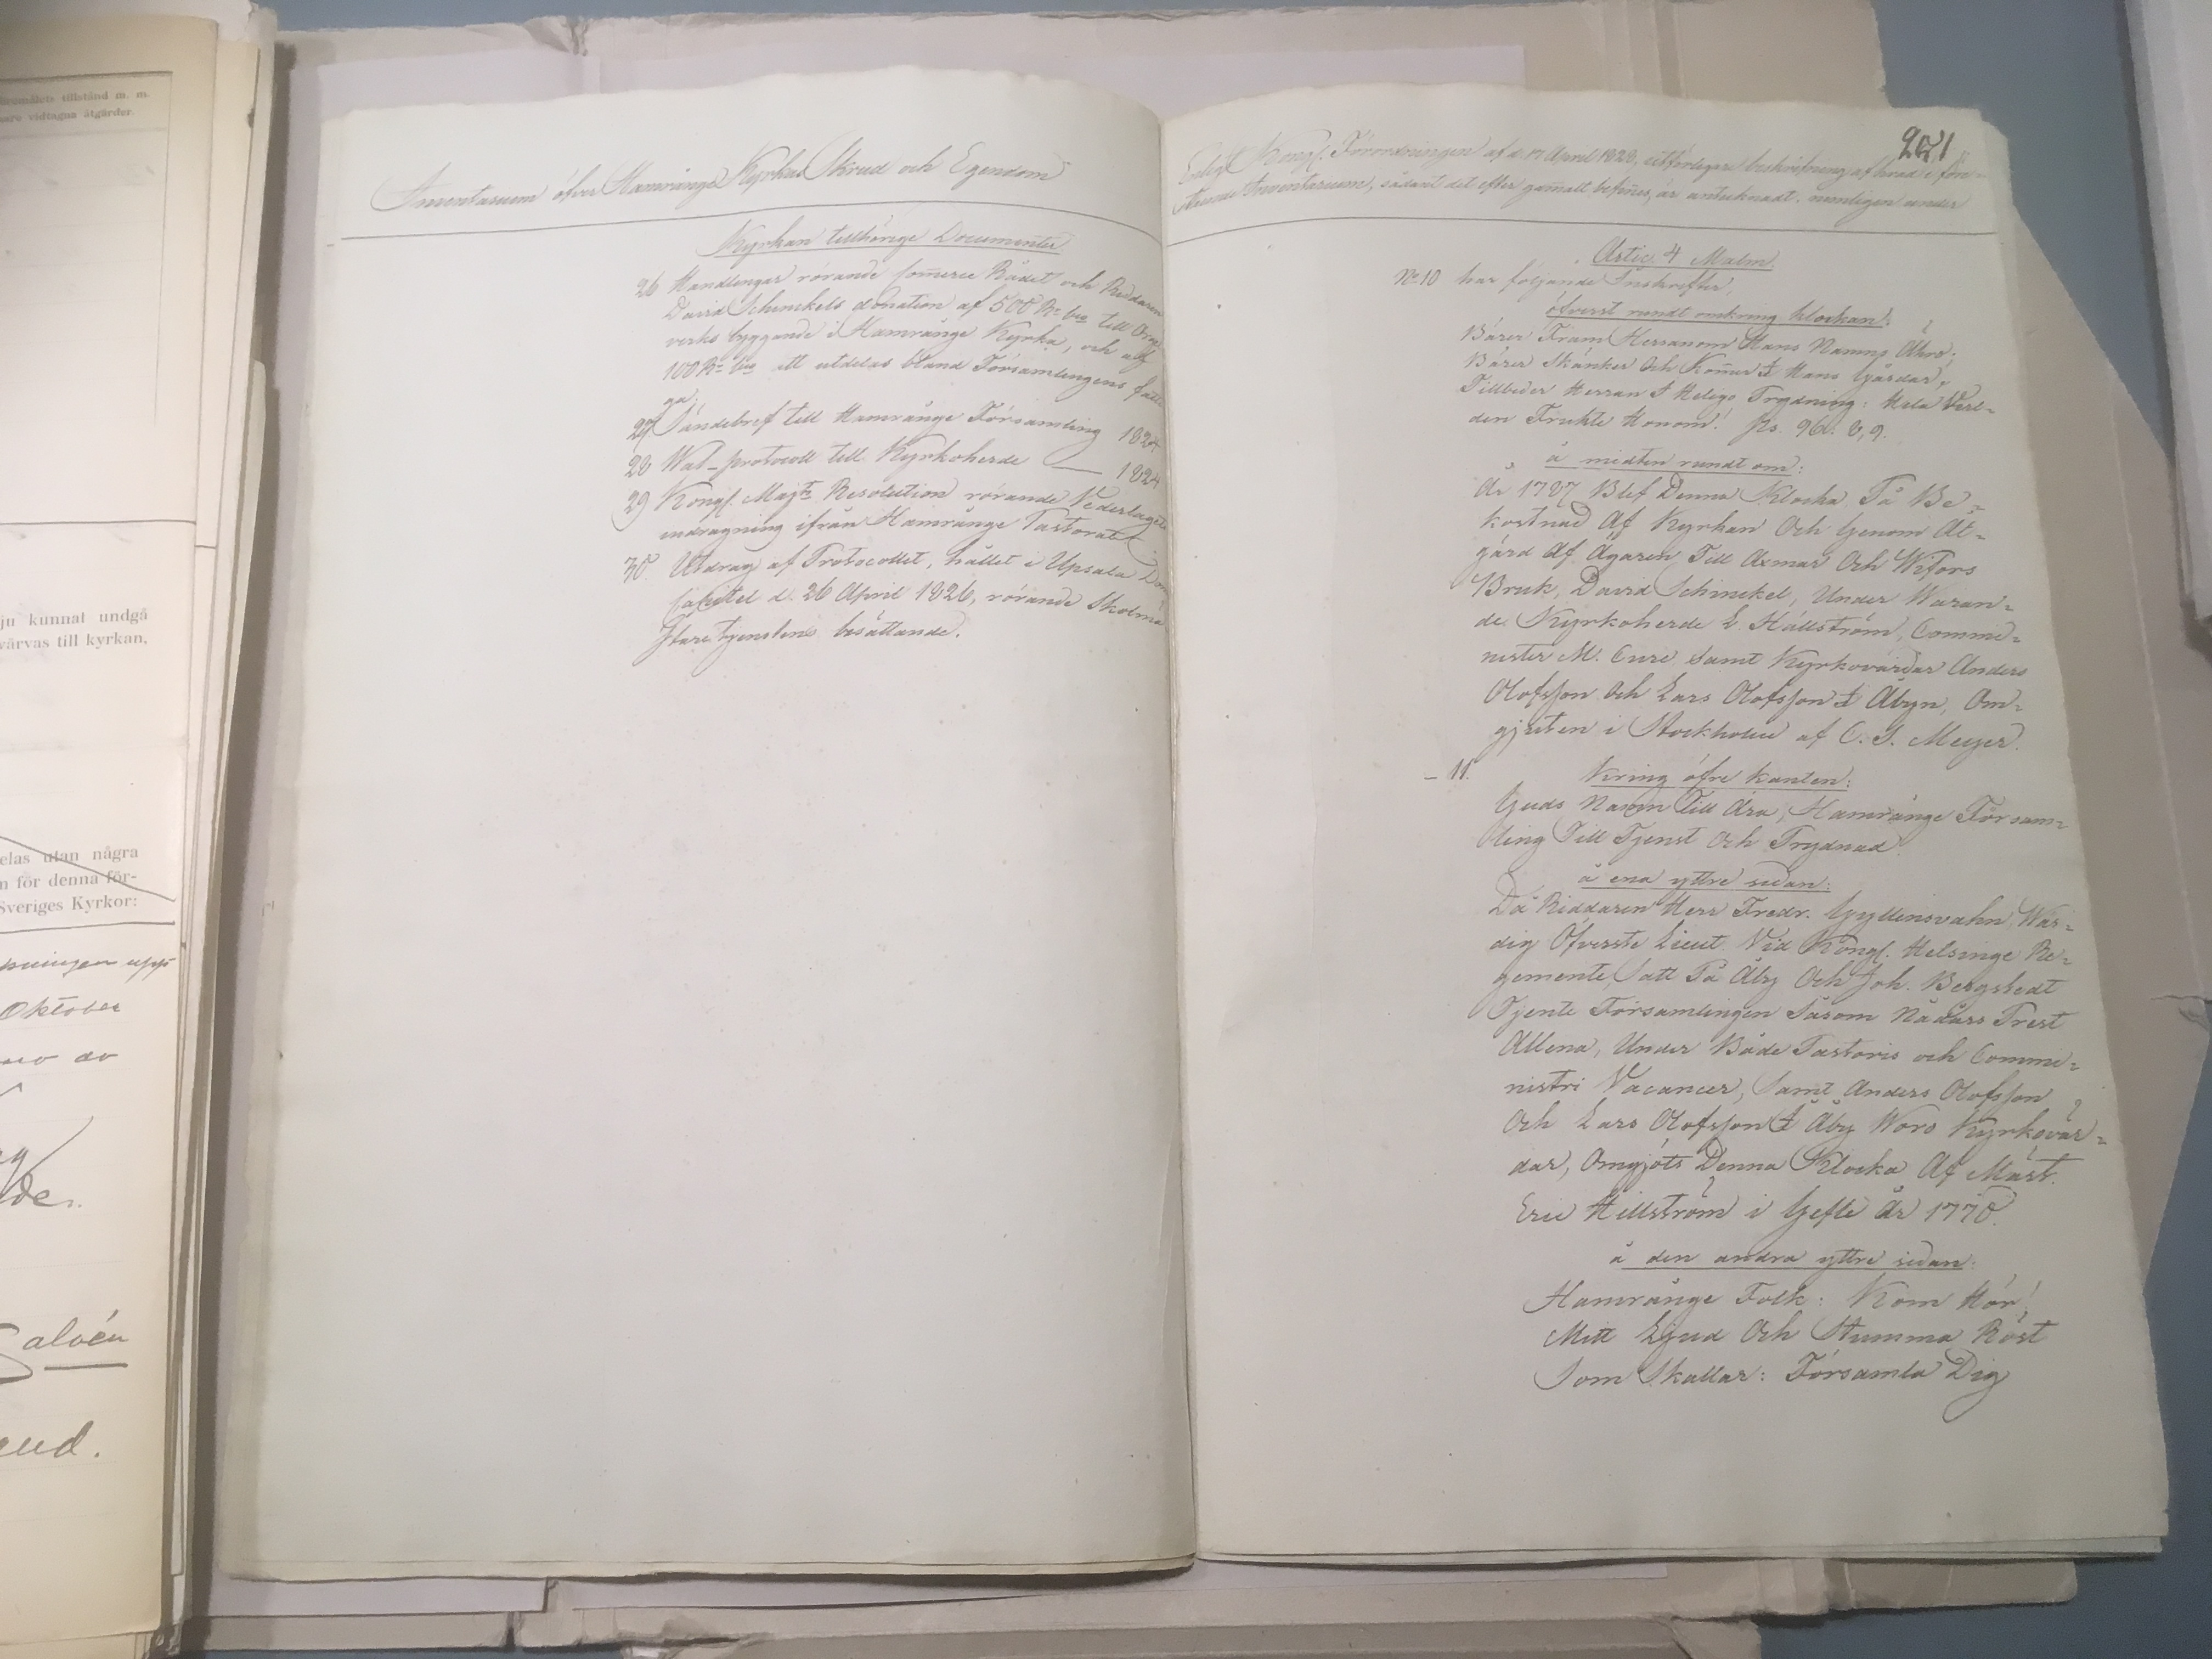 ökomålets tillstånd m. m.
vidtagna åtgärder.
ju kunnat undgå
värvas till kyrkan,
elas utan några
n för denna för-
Sveriges Kyrkor:
upp
Oktober
av
alvén
Inventarium öfver Hamrånge Kyrkas Skrud och Egendom
Kyrkan tillhörige Documenter
26 Handlingar rörande Com̅erce Rådet och Riddaren
David Schinckels donation af 500 Rd bco till Orge
verks byggande i Hamrånge Kyrka, och af
100 Rd bco att utdelas bland Församlingens fatti
ga.
27 Sändebref till Hamrånge Församling 1824
28 Wal-protocoll till Kyrkoherde — 1824
29 Kongl. Majts Resolution rörande Vederlagets
indragning ifrån Hamrånge Pastorat
30. Utdrag af Protocollet, hållet i Upsala Dom
Capitel d. 26 April 1826, rörande Skolmä
staretjenstens besättande.
221
Enligt Kongl. Förordningen af d. 17 April 1828, utförligare beskrifning af hvad i före
stående Inventarium, sådant det efter gam̅alt befin̅es, är antecknadt, nemligen under
Artic. 4 Malm.
No 10 har följande Inskrifter,
öfverst rundt omkring klockan:
Bärer Fram Herranom Hans Namns Ähro;
Bärer Skänker Och Kom̅er I Hans Gårdar,
Tillbeder Herran I Heligo Prydning: Hela Verl-
den Frukte Honom! Ps. 96: 8, 9.
å midten rundt om:
År 1787 Blef Denna Klocka På Be-
kostnad Af Kyrkan Och Genom Åt-
gärd Af Ägaren Till Axmar Och Wifors
Bruk, David Schinckel, Under Waran-
de Kyrkoherde E. Hällström, Commi-
nister M. Enre samt Kyrkovärdar Anders
Olofsson Och Lars Olofsson I Åbyn, Om-
gjuten i Stockholm af C. S. Meyer.
– 11. Kring öfre kanten:
Guds Namn Till Ära, Hamrånge Försam-
ling Till Tjenst Och Prydnad
å ena yttre sidan:
Då Riddaren Herr Fredr. Gyllensvahn, Wär-
dig Öfverste Lieut. Vid Kongl. Helsinge Re-
gemente, Satt På Åby Och Joh. Bergstedt
Tjente Församlingen Såsom Nådårs Prest
Allena, Under Både Pastoris och Commi-
nistri Vacancer, Samt Anders Olofsson
Och Lars Olofsson I Åby Woro Kyrkovär-
dar, Omgjöts Denna Klocka Af Mäst.
Eric Hillström i Gefle År 1770.
å den andra yttre sidan:
Hamrånge Folk: Kom Hör!
Mitt Ljud Och Stumma Röst
Som Skallar: Församla Dig